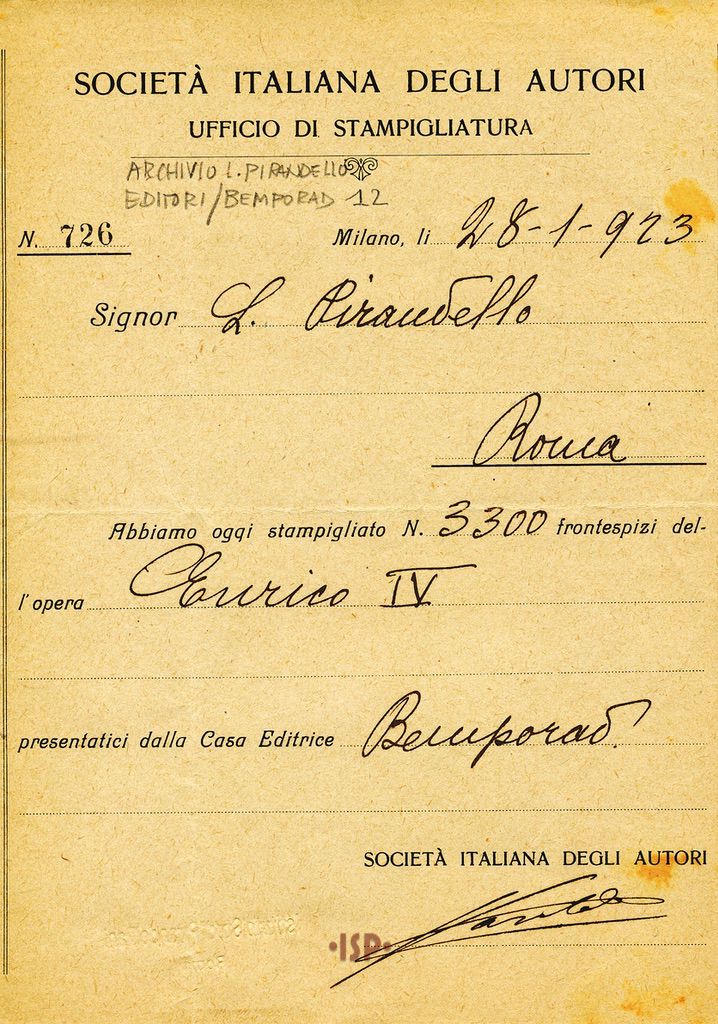 SOCIETÀ ITALIANA DEGLI AUTORI
UFFICIO DI STAMPIGLIATURA
ARCHIVIO L. PIRANDELLO
EDITORI/BEMPORAD 12
N. 726 Milano, li 28-1-923
Signor L. Pirandello
Roma
Abbiamo oggi stampigliato N. 3300 frontespizi del-
l'opera Enrico IV
presentatici dalla Casa Editrice Bemporad.
SOCIETÀ ITALIANA DEGLI AUTORI
•ISP•